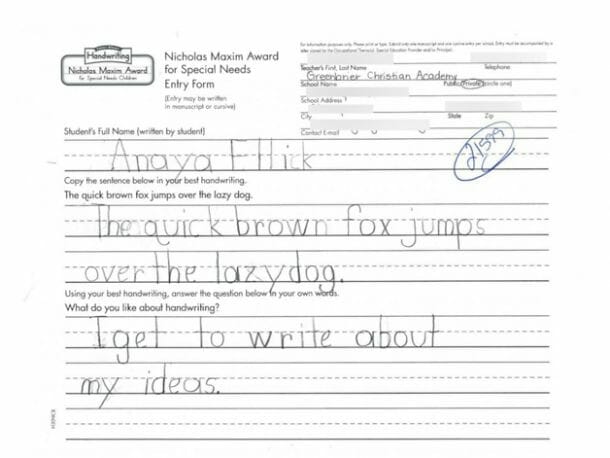 Handwriting
Nicholas Maxim Award
for Special Needs Children
Nicholas Maxim Award
for Special Needs
Entry Form
(Entry may be written
in manuscript or cursive)
Teacher's First, Last Name Telephone
Greenbrier Christian Academy
School Name Public/Private (circle one)
School Address
City State Zip
Contact E-mail
Student's Full Name (written by student)
21599
Anaya Ellick
Copy the sentence below in your best handwriting.
The quick brown fox jumps over the lazy dog.
The quick brown fox jumps
over the lazy dog.
Using your best handwriting, answer the question below in your own words.
What do you like about handwriting?
I get to write about
my ideas.